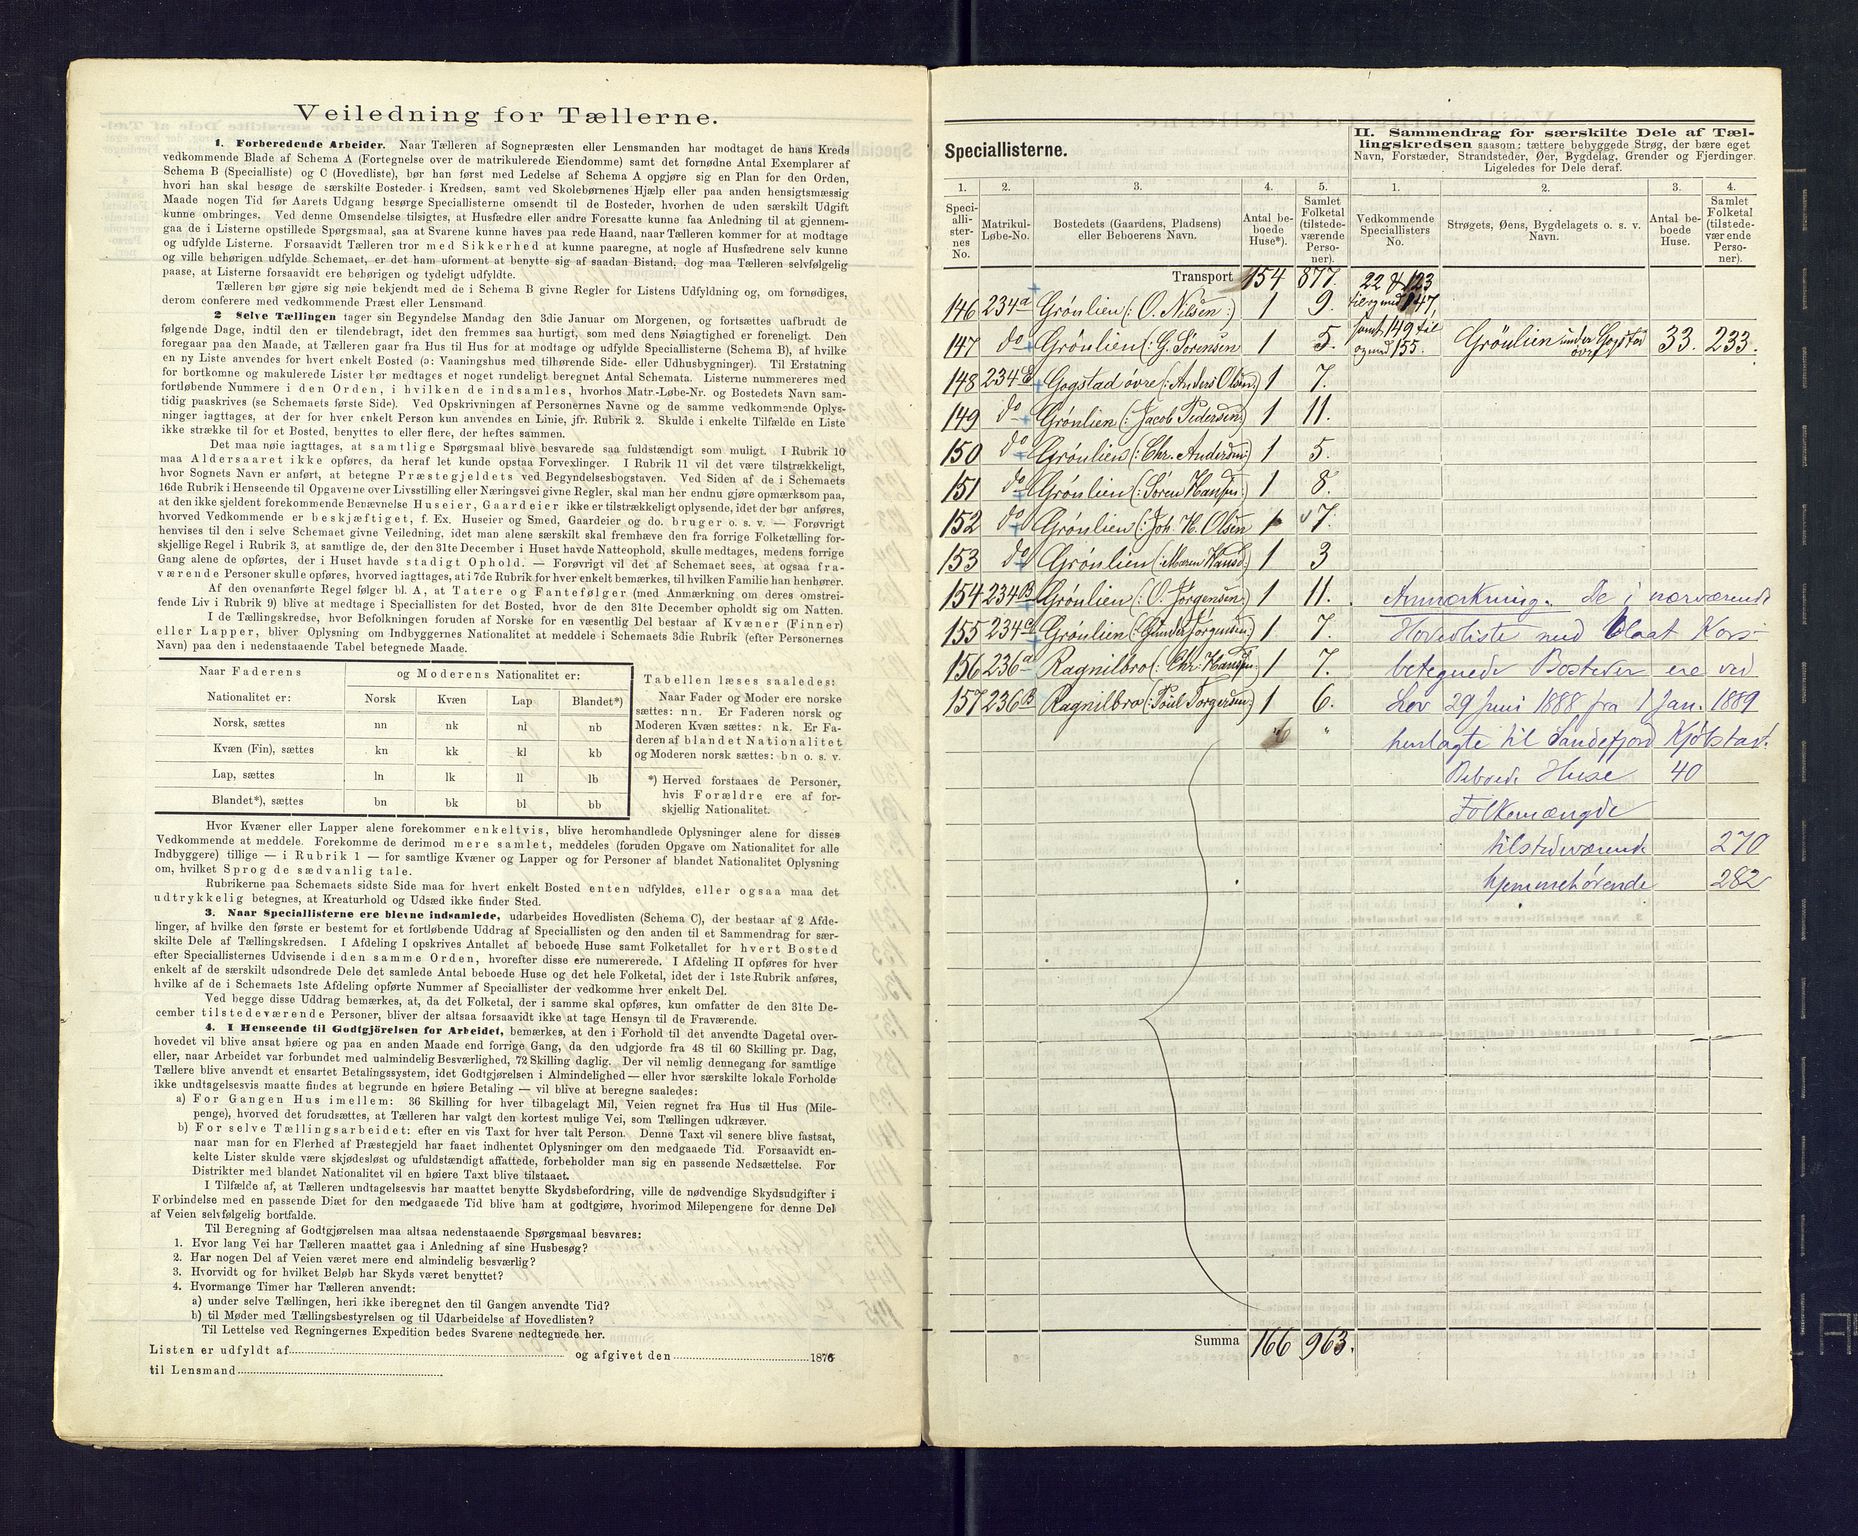 Veiledning for Tællerne.
1. Forberedende Arbeider. Naar Tælleren af Sognepræsten eller Lensmanden har modtaget de hans Kreds
vedkommende Blade af Schema A (Fortegnelse over de matrikulerede Eiendomme) samt det fornødne Antal Exemplarer af
Schema B (Specialliste) og C (Hovedliste), bør han først med Ledelse af Schema A opgjøre sig en Plan for den Orden,
hvori han skal besøge de særskilte Bosteder i Kredsen, samt ved Skolebørnenes Hjælp eller paa anden hensigtsmæssig
Maade nogen Tid før Aarets Udgang besørge Speciallisterne omsendt til de Bosteder, hvorhen de uden særskilt Udgift
kunne ombringes. Ved denne Omsendelse tilsigtes, at Husfædre eller andre Foresatte kunne faa Anledning til at gjennem-
gaa de i Listerne opstillede Spørgsmaal, saa at Svarene kunne haves paa rede Haand, naar Tælleren kommer for at modtage
og udfylde Listerne. Forsaavidt Tælleren tror med Sikkerhed at kunne paaregne, at nogle af Husfædrene selv kunne
og ville behørigen udfylde Schemaet, er det ham uforment at benytte sig af saadan Bistand, dog maa Tælleren selvfølgelig
paase, at Listerne forsaavidt ere behørigen og tydeligt udfyldte.
Tælleren bør gjøre sig nøie bekjendt med de i Schema B givne Regler for Listens Udfyldning og, om fornødiges,
derom conferere med vedkommende Præst eller Lensmand.
2 Selve Tællingen tager sin Begyndelse Mandag den 3die Januar om Morgenen, og fortsættes uafbrudt de
følgende Dage, indtil den er tilendebragt, idet den fremmes saa hurtigt, som med dens Nøiagtighed er foreneligt. Den
foregaar paa den Maade, at Tælleren gaar fra Hus til Hus for at modtage og udfylde Speciallisterne (Schema B), af hvilke
en ny Liste anvendes for hvert enkelt Bosted (ɔ: Vaaningshus med tilhørende Side- eller Udhusbygninger). Til Erstatning
for bortkomne og makulerede Lister bør medtages et noget rundeligt beregnet Antal Schemata. Listerne nummereres med
fortløbende Nummere i den Orden, i hvilken de indsamles, hvorhos Matr.-Løbe-Nr. og Bostedets Navn sam-
tidig paaskrives (se Schemaets første Side). Ved Opskrivningen af Personernes Navne og de samme vedkommende Oplys-
ninger iagttages, at der for hver enkelt Person kun anvendes en Linie, jfr. Rubrik 2. Skulde i enkelte Tilfælde en Liste
ikke strække til for et Bosted, benyttes to eller flere, der heftes sammen.
Det maa nøie iagttages, at samtlige Spørgsmaal blive besvarede saa fuldstændigt som muligt. I Rubrik 10
maa Aldersaaret ikke opføres, da heraf let kunde opstaa Forvexlinger. I Rubrik 11 vil det være tilstrækkeligt,
hvor Sognets Navn er anført, at betegne Præstegjeldets ved Begyndelsesbogstaven. Ved Siden af de i Schemaets
16de Rubrik i Henseende til Opgaverne over Livsstilling eller Næringsvei givne Regler, skal man her endnu gjøre opmærksom paa,
at den ikke sjeldent forekommende Benævnelse Huseier, Gaardeier ikke er tilstrækkeligt oplysende, idet der bør anføres,
hvorved Vedkommende er beskjæftiget, f. Ex. Huseier og Smed, Gaardeier og do. bruger o. s. v. — Forøvrigt
henvises til den i selve Schemaet givne Veiledning, idet man alene særskilt skal fremhæve den fra forrige Folketælling for-
skjellige Regel i Rubrik 3, at samtlige de, der den 31te December i Huset havde Natteophold, skulle medtages, medens forrige
Gang alene de opførtes, der i Huset havde stadigt Ophold. — Forøvrigt vil det af Schemaet sees, at ogsaa fra-
værende Personer skulle opføres, hvorved iagttages, at i 7de Rubrik for hver enkelt bemærkes, til hvilken Familie han henhører.
Af den ovenanførte Regel følger bl. A, at Tatere og Fantefølger (med Anmærkning om deres omstrei-
fende Liv i Rubrik 9) blive at medtage i Speciallisten for det Bosted, hvor de den 31te December opholdt sig om Natten.
I de Tællingskredse, hvor Befolkningen foruden af Norske for en væsentlig Del bestaar af Kvæner (Finner)
eller Lapper, bliver Oplysning om Indbyggernes Nationalitet at meddele i Schemaets 3die Rubrik (efter Personernes
Navn) paa den i nedenstaaende Tabel betegnede Maade.
Naar Faderens og Moderens Nationalitet er:
Nationalitet er: Norsk Kvæn Lap Blandet*)
Norsk, sættes nn nk nl nb
Kvæn (Fin), sættes kn kk kl kb
Lap, sættes ln lk ll lb
Blandet*), sættes bn bk bl bb
Tabellen læses saaledes:
Naar Fader og Moder ere norske
sættes: nn. Er Faderen norsk og
Moderen Kvæn sættes: nk. Er Fa-
deren af blandet Nationalitet
og Moderen norsk sættes: bn o. s. v.
*) Herved forstaaes de Personer,
hvis Forældre ere af for-
skjellig Nationalitet.
Hvor Kvæner eller Lapper alene forekommer enkeltvis, blive heromhandlede Oplysninger alene for disses
Vedkommende at meddele. Forekomme de derimod mere samlet, meddeles (foruden Opgave om Nationalitet for alle
Indbyggere) tillige — i Rubrik 1 — for samtlige Kvæner og Lapper og for Personer af blandet Nationalitet Oplysning
om, hvilket Sprog de sædvanlig tale.
Rubrikerne paa Schemaets sidste Side maa for hvert enkelt Bosted enten udfyldes, eller ogsaa maa det
udtrykkelig betegnes, at Kreaturhold og Udsæd ikke finder Sted.
3. Naar Speciallisterne ere blevne indsamlede, udarbeides Hovedlisten (Schema C), der bestaar af 2 Afde-
linger, af hvilke den første er bestemt for et fortløbende Uddrag af Speciallisten og den anden til et Sammendrag for sær-
skilte Dele af Tællingskredsen. I Afdeling I opskrives Antallet af beboede Huse samt Folketallet for hvert Bosted
efter Speciallisternes Udvisende i den samme Orden, hvorefter disse ere numererede. I Afdeling II opføres for hver
enkelt af de særskilt udsondrede Dele det samlede Antal beboede Huse og det hele Folketal, idet der i 1ste Rubrik anføres,
hvilke af de i Schemaets 1ste Afdeling opførte Nummer af Speciallister der vedkomme hver enkelt Del.
Ved begge disse Uddrag bemærkes, at, da det Folketal, der i samme skal opføres, kun omfatter de den 31te De-
cember tilstedeværende Personer, bliver der altsaa forsaavidt ikke at tage Hensyn til de Fraværende.
4. I Henseende til Godtgjörelsen for Arbeidet, bemærkes, at den i Forhold til det anvendte Dagetal over-
hovedet vil blive ansat høiere og paa en anden Maade end forrige Gang, da den udgjorde fra 48 til 60 Skilling pr. Dag,
eller, naar Arbeidet var forbundet med ualmindelig Besværlighed, 72 Skilling daglig. Der vil nemlig dennegang for samtlige
Tællere blive anvendt et ensartet Betalingssystem, idet Godtgjörelsen i Almindelighed — eller hvor særskilte lokale Forholde
ikke undtagelsesvis maatte findes at begrunde en høiere Betaling — vil blive at beregne saaledes:
a) For Gangen Hus imellem: 36 Skilling for hver tilbagelagt Mil, Veien regnet fra Hus til Hus (Mile-
penge), hvorved det forudsættes, at Tælleren har valgt den kortest mulige Vei, som Tællingen udkræver.
b) For selve Tællingsarbeidet: efter en vis Taxt for hver talt Person. Denne Taxt vil senere blive fastsat,
naar man for en Flerhed af Præstegjeld har faaet indhentet Oplysninger om den medgaaede Tid. Forsaavidt en-
kelte Lister skulde være skjødesløst og ufuldstændigt affattede, forbeholder man sig en passende Nedsættelse. For
Distrikter med blandet Nationalitet vil en høiere Taxt blive tilstaaet.
I Tilfælde af, at Tælleren undtagelsesvis har maattet benytte Skydsbefordring, ville de nødvendige Skydsudgifter i
Forbindelse med en passende Diæt for den medgaaede Tid blive ham at godtgjøre, hvorimod Milepengene for denne Del
af Veien selvfølgelig bortfalde.
Til Beregning af Godtgjørelsen maa altsaa nedenstaaende Spørgsmaal besvares:
1. Hvor lang Vei har Tælleren maattet gaa i Anledning af sine Husbesøg?
2. Har nogen Del af Veien været mere end almindelig besværlig?
3. Hvorvidt og for hvilket Beløb har Skyds været benyttet?
4. Hvormange Timer har Tælleren anvendt:
a) under selve Tællingen, heri ikke iberegnet den til Gangen anvendte Tid?
b) til Møder med Tællingsbestyrelsen og til Udarbeidelse af Hovedlisten?
Til Lettelse ved Regningernes Expedition bedes Svarene nedtegnede her.
Listen er udfyldt af og afgivet den 1876
til Lensmand
Speciallisterne.
II. Sammendrag for særskilte Dele af Tæl-
lingskredsen saasom: tættere bebyggede Strøg, der bære eget
Navn, Forstæder, Strandsteder, Øer, Bygdelag, Grender og Fjerdinger.
Ligeledes for Dele deraf.
1. 2. 3. 4. 5. 1. 2. 3. 4.
Speci-
alli-
ster-
nes
No.
Matrikul-
Løbe-No.
Bostedets (Gaardens, Pladsens)
eller Beboerens Navn.
Antal be-
boede
Huse*).
Samlet
Folketal
(tilstede-
værende
Perso-
ner).
Vedkommende
Speciallisters
No.
Strøgets, Øens, Bygdelagets o. s. v.
Navn.
Antal be-
boede
Huse.
Samlet
Folketal
(tilstede-
værende
Perso-
ner).
Transport 154 877. 22 & 123
146 234a Grönlien (: O. Nilsen :) 1 9. til og med 147,
147 do Grönlien (: G. Sörensen 1 5. samt 149 til og med 155. Grönlien under Gogstad övre 33. 233.
148 234 Gogstad övre (: Anders Olsen.) 1 7.
149 do Grönlien (: Jacob Pedersen) 1 11.
150 do Grönlien (: Chr. Andersen:) 1 5.
151 do Grönlien (: Sören Hansen:) 1 8.
152 do Grönlien (: Joh. H. Olsen 1 7.
153 do Grönlien (: Maren Hansd. 1 3
154 234B Grönlien (: O. Jörgensen.) 1 11. Anmærkning. De i nærværende
155 234c Grönlien (: Gunder Jörgensen) 1 7. Hovedliste med blaat Kors
156 236a Ragnilbro (: Chr: Hansen:) 1 7. betegnede Bosteder ere ved
157 236B Ragnilbro (: Poul Torgersen:) 1 6. Lov 29 Juni 1888 fra 1 Jan. 1889
henlagte til Sandefjord Kjöbstad.
Beboede Huse 40
Folkemængde
tilstedeværende 270
hjemmehörende 282
Summa 166 963.